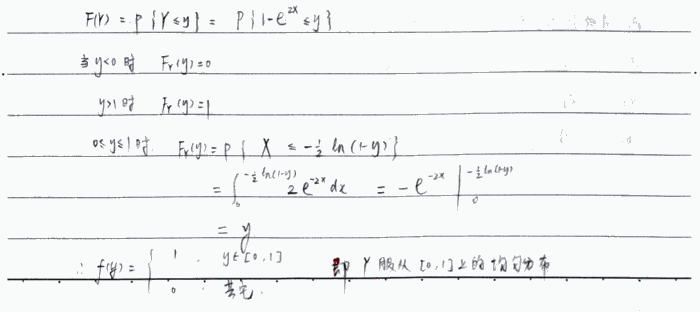 F(Y) = P{Y≤y} = P{1-e^{2X}≤y}
当 y<0 时 F_Y(y)=0
y>1 时 F_Y(y)=1
0≤y≤1 时 F_Y(y)=P{X ≤ -1/2 ln(1-y)}
= ∫_0^{-1/2 ln(1-y)} 2e^{-2x}dx = -e^{-2x} |_0^{-1/2 ln(1-y)}
= y
∴ f(y) = { 1, y∈[0,1] 即 Y 服从 [0,1] 上的均匀分布
0, 其它.